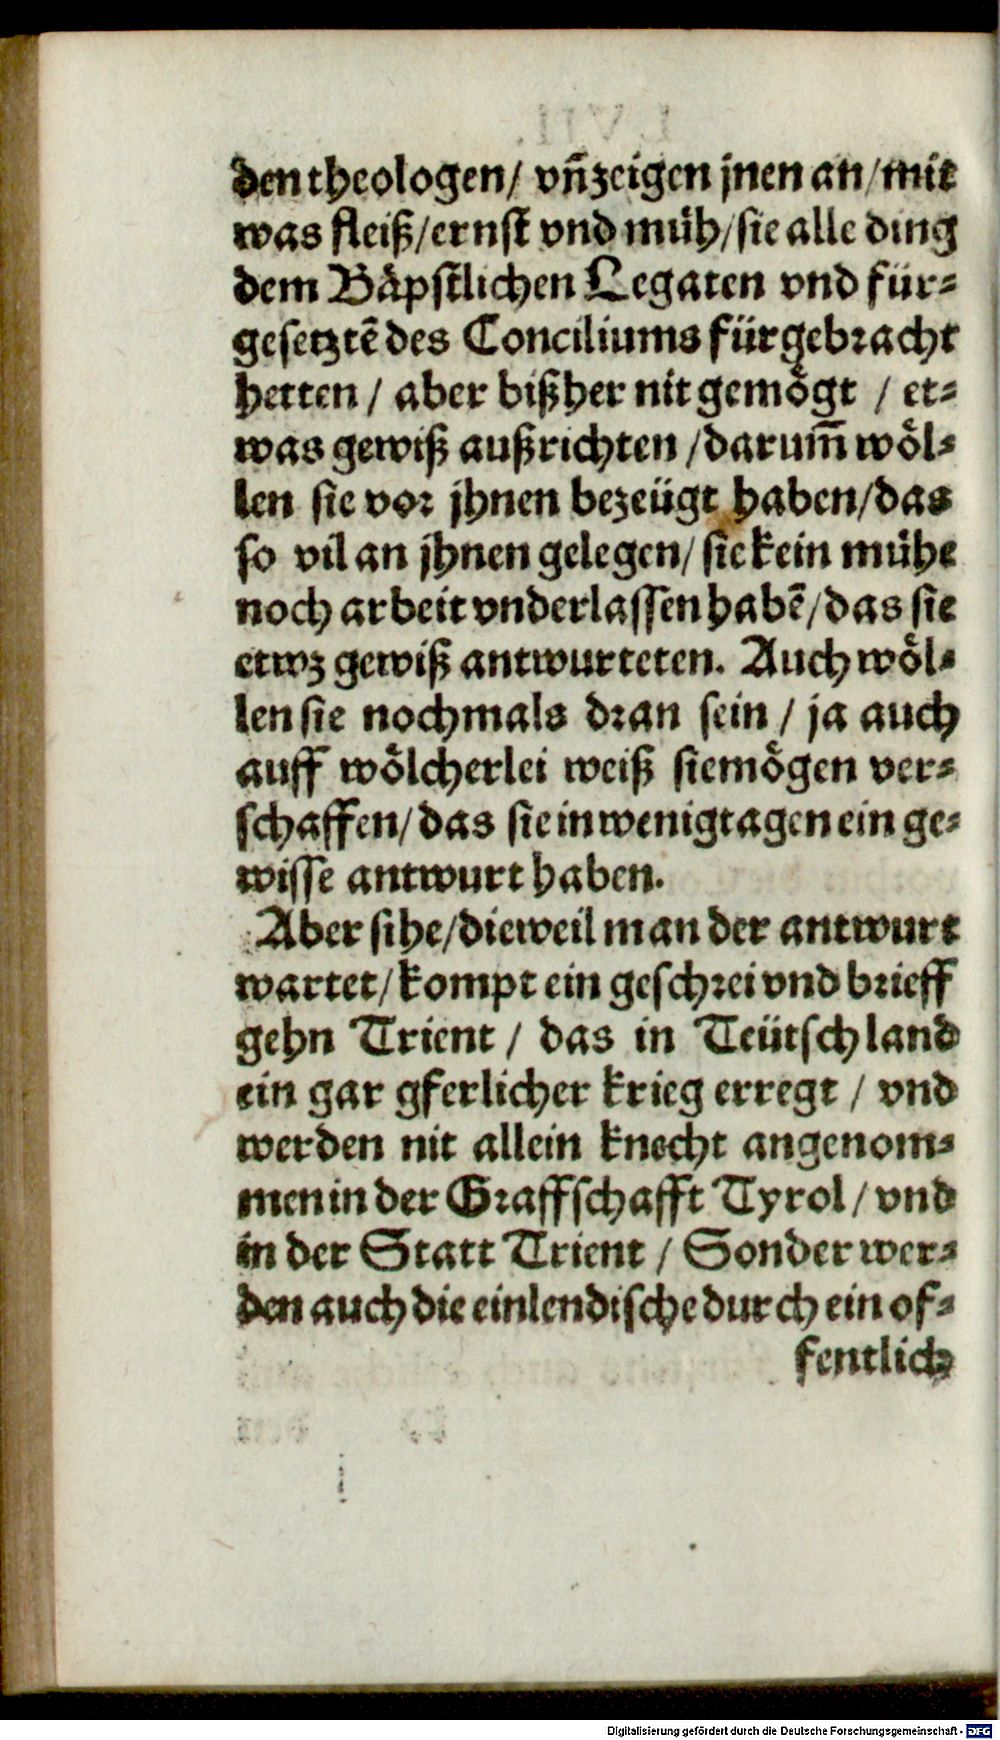 den theologen/ vñ zeigen jnen an/ mit
was fleiß/ ernst vnd müh/ sie alle ding
dem Bäpstlichen Legaten vnd für-
gesetztē des Conciliums fürgebracht
hetten / aber bißher nit gemögt / et-
was gewiß außrichten / darum̃ wöl-
len sie vor jhnen bezeügt haben/ das
so vil an jhnen gelegen/ sie kein mühe
noch arbeit vnderlassen habē/ das sie
etwz gewiß antwurteten. Auch wöl-
len sie nochmals dran sein / ja auch
auff wölcherlei weiß sie mögen ver-
schaffen/ das sie in wenig tagen ein ge-
wisse antwurt haben.
Aber sihe/ dieweil man der antwurt
wartet/ kompt ein geschrei vnd brieff
gehn Trient / das in Teütschland
ein gar gferlicher krieg erregt / vnd
werden nit allein knecht angenom-
men in der Graffschafft Tyrol/ vnd
in der Statt Trient / Sonder wer-
den auch die einlendische durch ein of-
fentlich
Digitalisierung gefördert durch die Deutsche Forschungsgemeinschaft - DFG